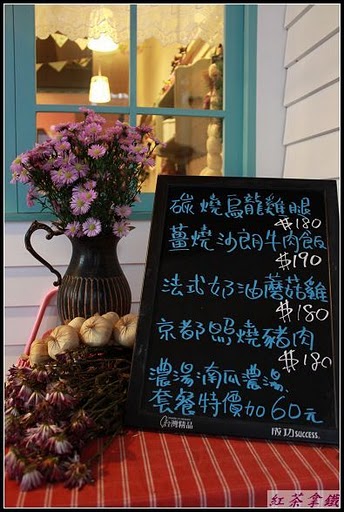 碳燒烏龍雞腿
$180
薑燒沙朗牛肉飯
$190
法式奶油蘑菇雞
$180
京都照燒豬肉
$180
濃湯:南瓜濃湯
套餐特價加60元
台灣精品
成功success.
紅茶拿鐵